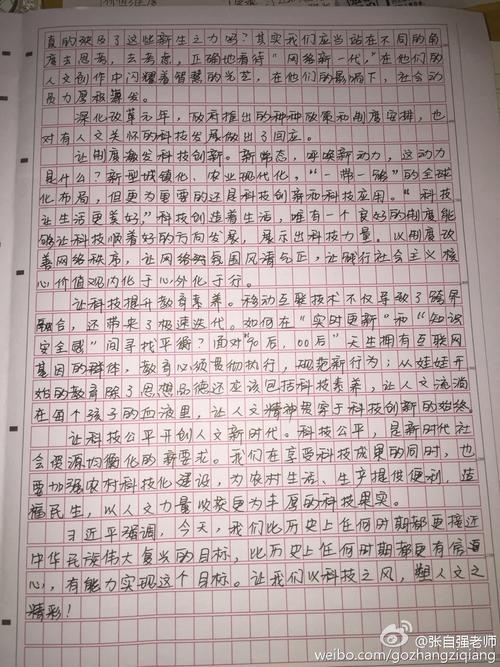 真的缺失了这些新生之力吗？其实我们应当站在不同的角
度去思考，去考虑，正确地看待“网络新一代”，在他们的
人文创作中闪耀着智慧的光芒，在他们的影响下，社会动
员力厚积薄发。
深化改革元年，政府推出的种种政策和制度安排，也
对有人文关怀的科技发展做出了回应。
让制度激发科技创新。新常态，呼唤新动力，这动力
是什么？新型城镇化、农业现代化，“一带一路”的全球
化布局，但更为重要的还是科技创新和科技应用。“科技
让生活更美好”科技创造着生活，唯有一个良好的制度能
够让科技顺着好的方向发展，展示出科技力量。以制度改
善网络秩序，让网络氛围风清气正，让践行社会主义核
心价值观内化于心外化于行。
让科技提升教育素养。移动互联技术不仅导致了跨界
融合，还带来了极速迭代。如何在“实时更新”和“知识
安全感”间寻找平衡？面对“90后，00后”天生拥有互联网
基因的群体，教育必须贯彻执行，规范新行为；从娃娃开
始的教育除了思想品德还应该包括科技素养，让人文流淌
在每个孩子的血液里，让人文精神贯穿于科技创新的始终。
让科技公平开创人文新时代。科技公平，是新时代社
会资源均衡化的新要求。我们在享受科技成果的同时，也
要加强农村科技化建设，为农村生活、生产提供便利，造
福民生，以人文力量收获更为丰厚的科技果实。
习近平强调，今天，我们比历史上任何时期都更接近
中华民族伟大复兴的目标，比历史上任何时期都更有信
心，有能力实现这个目标。让我们以科技之风，塑人文之
精彩！
@张自强老师
weibo.com/gozhangziqiang